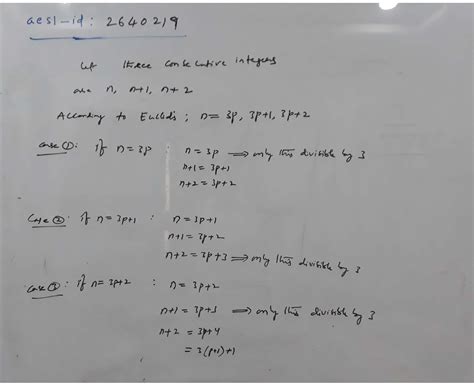 aesl-id: 2640219
Let three consecutive integers
are n, n+1, n+2
According to Euclid's ; n = 3p, 3p+1, 3p+2
Case ①: if n = 3p : n = 3p ⟹ only this divisible by 3
n+1 = 3p+1
n+2 = 3p+2
Case ②: if n = 3p+1 : n = 3p+1
n+1 = 3p+2
n+2 = 3p+3 ⟹ only this divisible by 3
Case ③: if n = 3p+2 : n = 3p+2
n+1 = 3p+3 ⟹ only this divisible by 3
n+2 = 3p+4
= 3(p+1)+1